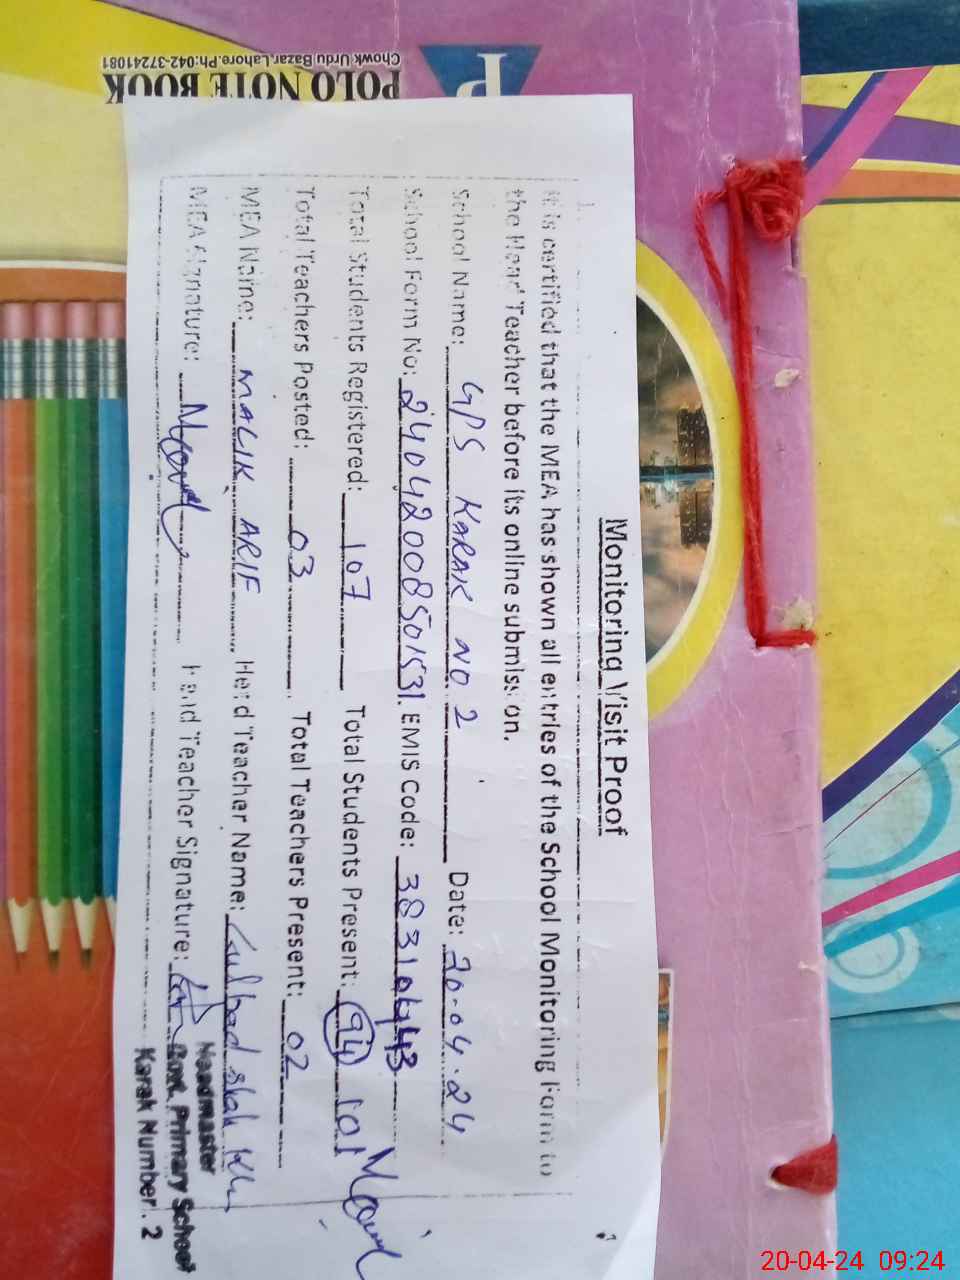 Monitoring Visit Proof
It is certified that the MEA has shown all entries of the School Monitoring Form to
the Head Teacher before its online submission.
School Name: GPS KARAK NO 2 Date: 20.04.24
School Form No: 24042008501531 EMIS Code:
Total Students Registered: 107 Total Students Present: 94 101
Total Teachers Posted: 03 Total Teachers Present: 02
MEA Name: MALIK ARIF Head Teacher Name:
MEA Signature: Head Teacher Signature:
Headmaster
Govt. Primary School
Karak Number. 2
POLO NOTE BOOK
Chowk Urdu Bazar, Lahore. Ph: 042-37241081
P
20-04-24 09:24